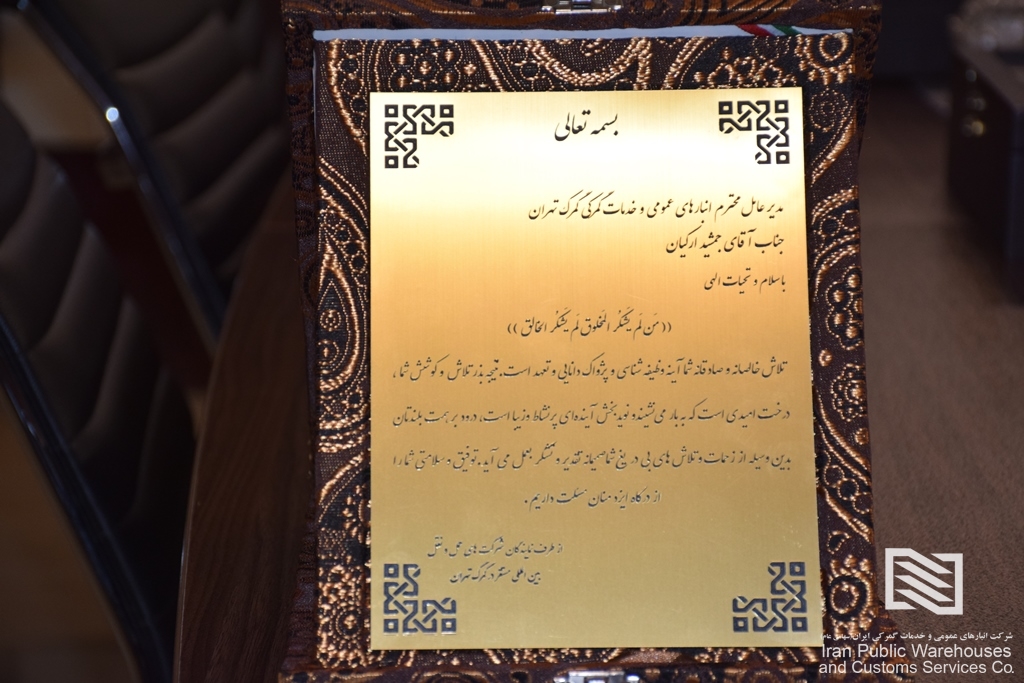 بسمه تعالی
مدیر عامل محترم انبارهای عمومی و خدمات گمرکی گمرک تهران
جناب آقای جمشید ارکیان
با سلام و تحیات الهی
((مَن لَم یَشکُر المَخلوق لَم یَشکُر الخالق))
تلاش خالصانه و صادقانه شما آینه وظیفه شناسی و پژواک دانایی و تعهد است. نتیجه بذر تلاش و کوشش شما،
درخت امیدی است که به بار می نشیند و نوید بخش آینده ای پر نشاط و زیبا است، درود بر همت بلندتان
بدین وسیله از زحمات و تلاش های پی در پی شما صمیمانه تقدیر و تشکر بعمل می آید. توفیق و سلامتی شما را
از درگاه ایزد منان مسئلت داریم.
از طرف نمایندگان شرکت های حمل و نقل
بین المللی مستقر در گمرک تهران
شرکت انبارهای عمومی و خدمات گمرکی ایران(سهامی عام)
Iran Public Warehouses
and Customs Services Co.